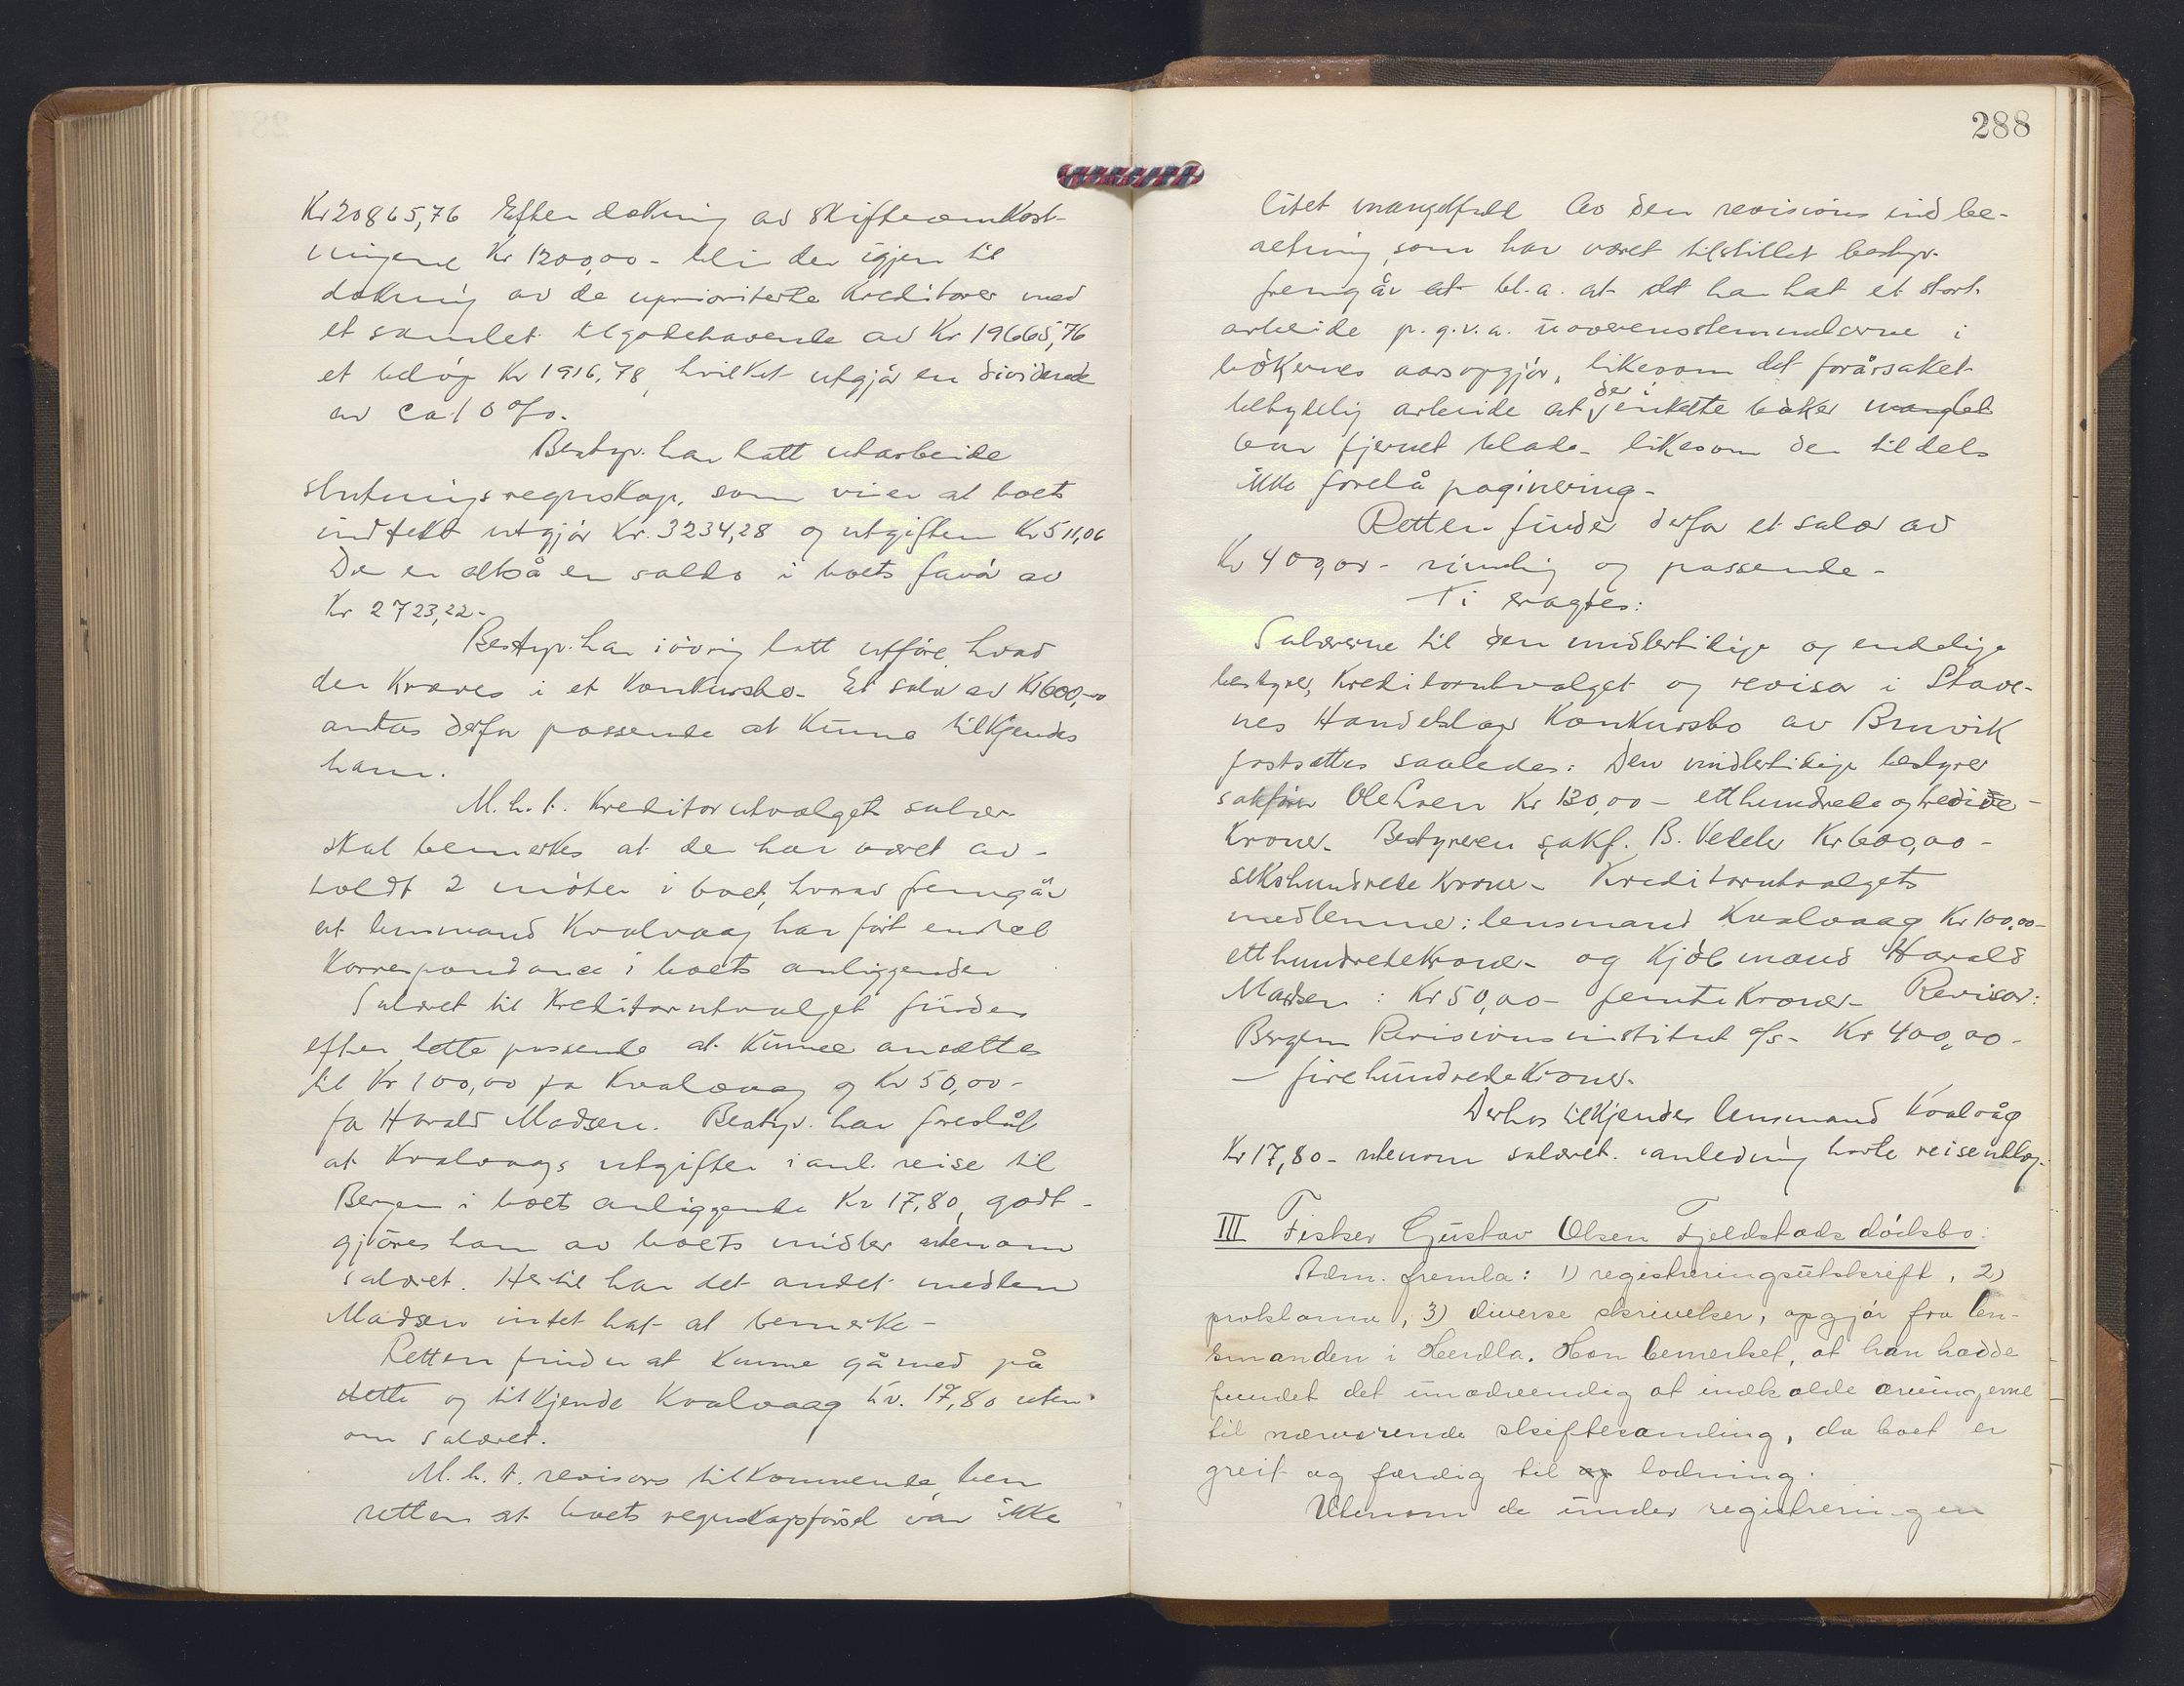 Kr 20865,76 Efter dækning av skifteomkost-
ningene Kr 1200,00 - blir der igjen til
dækning av de uprioriterte kreditorer med
et samlet tilgodehavende av Kr 19665,76
et beløp Kr 1916,78, hvilket utgjør en dividende
av ca 10 %.
Bestyr. har latt utarbeide
slutningsregnskap, som viser at boets
indtekt utgjør Kr. 3234,28 og utgiften Kr 511,06
Der er altså en saldo i boets favør av
Kr 2723,22 -
Bestyr. har iøvrig latt utføre hvad
der kræves i et konkursbo - Et salær av Kr 600,00
antas derfor passende at kunne tilkjendes
ham.
M.h.t. kreditorutvalgets salær
skal bemerkes at der har været av-
holdt 2 møter i boet, hvorav fremgår
at lensmand Kvalvaag har ført endel
korrespondance i boets anliggender
Salæret til kreditorutvalget findes
efter dette passende at kunne ansættes
til Kr 100,00 for Kvalvaag og Kr 50,00 -
for Harald Madsen. Bestyr. har foreslåt
at Kvalvaags utgifter i anl. reise til
Bergen i boets anliggende Kr 17,80, godt-
gjøres ham av boets midler utenom
salæret. Hertil har det andet medlem
Madsen intet hat at bemerke -
Retten finder at kunne gå med på
dette og tilkjende Kvalvaag kr. 17,80 uten-
om salæret.
M.h.t. revisors tilkommende, bem
retten at boets regnskapsførsel var ikke
288
litet mangelfuld Av den revisions indbe-
retning, som har været tilstillet bestyr.
fremgår at bl.a. at det har hat et stort
arbeide p.g.v.a. uoverensstemmelserne i
bøkernes aarsopgjør, likesom det forårsaket
betydelig arbeide at der i enkelte bøker manglet
var fjernet blade - likesom der tildels
ikke forelå paginering -
Retten finder derfor et salær av
Kr 400,00 - rimelig og passende -
Ti eragtes:
Salærerne til den midlertidige og endelige
bestyrer, kreditorutvalget og revisor i Stave-
nes Handelslags konkursbo av Bruvik
fastsættes saaledes: Den midlertidige bestyrer
sakfører Ole Loen Kr 130,00 - etthundrede og tredive -
kroner - Bestyreren sakf. B. Vedeler Kr 600,00 -
sekshundrede kroner - Kreditorutvalgets
medlemme: lensmand Kvalvaag Kr 100,00 -
etthundrede kroner - og kjøbmand Harald
Madsen : Kr 50,00 - femti kroner - Revisor:
Bergen Revisionsinstitut a/s - Kr 400,00 -
- firehundrede kroner -
Derhos tilkjendes lensmand Kvalvåg
Kr 17,80 - utenom salæret i anledning havte reiseutlæg.
III Fisker Gustav Olsen Fjeldstads dødsbo:
Adm. fremla: 1) registreringsutskrift, 2)
proklama, 3) diverse skrivelser, opgjør fra len-
smanden i Herdla. Han bemerket, at han hadde
fundet det unødvendig at indkalde arvingerne
til nærværende skiftesamling, da boet er
greit og færdig til op lodning.
Utenom de under registreringen